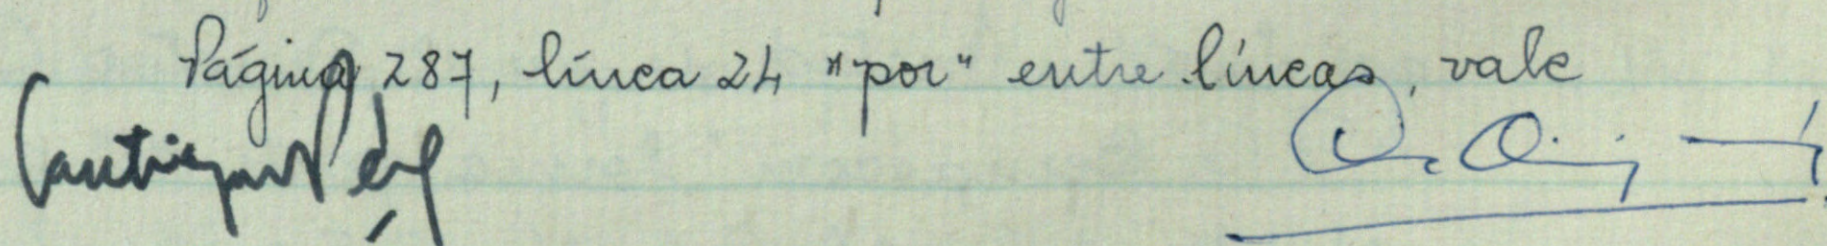 Página 287, línea 24 "por" entre líneas, vale